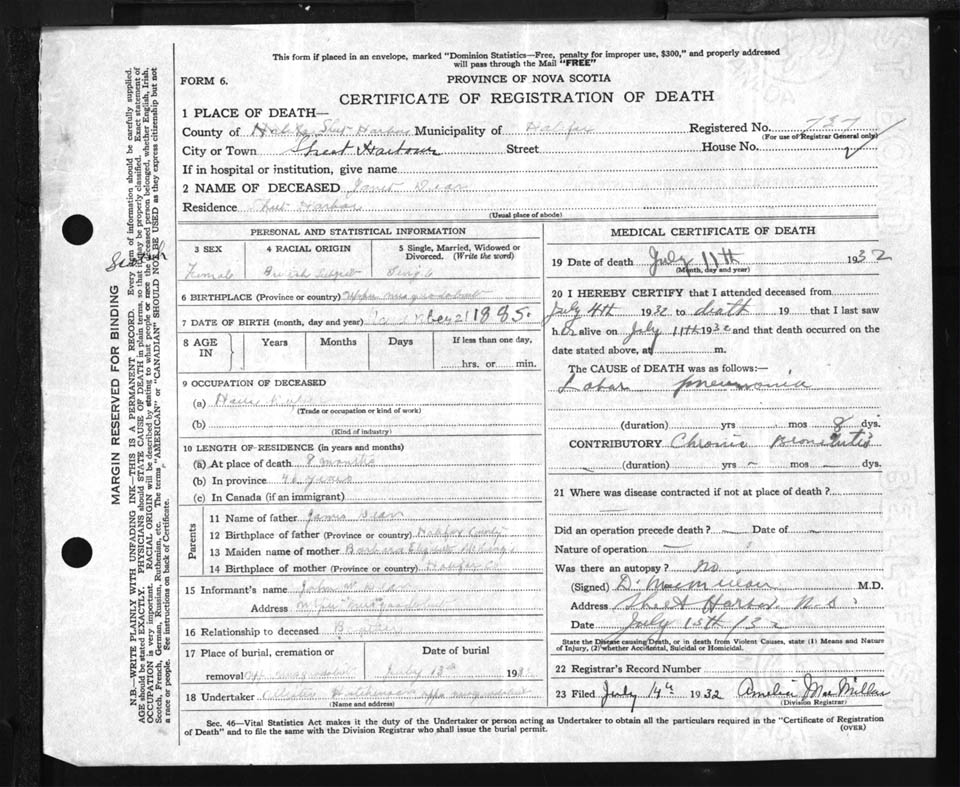 This form if placed in an envelope, marked "Dominion Statistics—Free, penalty for improper use, $300," and properly addressed
will pass through the Mail "FREE"
FORM 6.
PROVINCE OF NOVA SCOTIA
CERTIFICATE OF REGISTRATION OF DEATH
1 PLACE OF DEATH—
County of Harbor Municipality of Halifax Registered No. 737
(For use of Registrar General only)
City or Town Sheet Harbour Street House No.
If in hospital or institution, give name
2 NAME OF DECEASED Janet Dean
Residence Sheet Harbor
(Usual place of abode)
PERSONAL AND STATISTICAL INFORMATION
3 SEX 4 RACIAL ORIGIN 5 Single, Married, Widowed or Divorced. (Write the word)
Scotch
Female British Subject Single
6 BIRTHPLACE (Province or country) Upper Musquodoboit
7 DATE OF BIRTH (month, day and year) 21 1885.
8 AGE IN Years Months Days If less than one day,
hrs. or min.
9 OCCUPATION OF DECEASED
(a) House
(Trade or occupation or kind of work)
(b)
(Kind of industry)
10 LENGTH OF RESIDENCE (in years and months)
(a) At place of death 8 months
(b) In province 46 years
(c) In Canada (if an immigrant)
Parents
11 Name of father James Dean
12 Birthplace of father (Province or country) Halifax County
13 Maiden name of mother Barbara Elizabeth
14 Birthplace of mother (Province or country) Halifax Co
15 Informant's name John Dean
Address Upper Musquodoboit
16 Relationship to deceased Brother
17 Place of burial, cremation or removal Upp. Musquodoboit
Date of burial July 13th 1932
18 Undertaker Hutchinson Upper Musquodoboit
(Name and address)
MEDICAL CERTIFICATE OF DEATH
19 Date of death July 11th 1932
(Month, day and year)
20 I HEREBY CERTIFY that I attended deceased from
July 4th 1932 to death 19 that I last saw
her alive on July 11th 1932 and that death occurred on the
date stated above, at m.
The CAUSE of DEATH was as follows:—
Lobar pneumonia
(duration) yrs mos 8 dys.
CONTRIBUTORY Chronic Bronchitis
(duration) yrs – mos – dys.
21 Where was disease contracted if not at place of death?
Did an operation precede death? – Date of –
Nature of operation –
Was there an autopsy? no
(Signed) D. Macmillan M.D.
Address Sheet Harbor N.S.
Date July 15th /32
State the Disease causing Death, or in death from Violent Causes, state (1) Means and Nature
of Injury, (2) whether Accidental, Suicidal or Homicidal.
22 Registrar's Record Number
23 Filed July 14th 1932 Amelia MacMillan
(Division Registrar)
Sec. 46—Vital Statistics Act makes it the duty of the Undertaker or person acting as Undertaker to obtain all the particulars required in the "Certificate of Registration
of Death" and to file the same with the Division Registrar who shall issue the burial permit. (OVER)
MARGIN RESERVED FOR BINDING
N.B.—WRITE PLAINLY WITH UNFADING INK—THIS IS A PERMANENT RECORD. Every item of information should be carefully supplied.
AGE should be stated EXACTLY. PHYSICIANS should STATE CAUSE OF DEATH in plain terms, so that it may be properly classified. Exact statement of
OCCUPATION is very important. RACIAL ORIGIN will be described by stating to what people or race the deceased person belonged, whether English, Irish,
Scotch, French, German, Russian, Ruthenian, etc. The terms "AMERICAN" or "CANADIAN" SHOULD NOT BE USED as they express citizenship but not
a race or people. See instructions on back of Certificate.